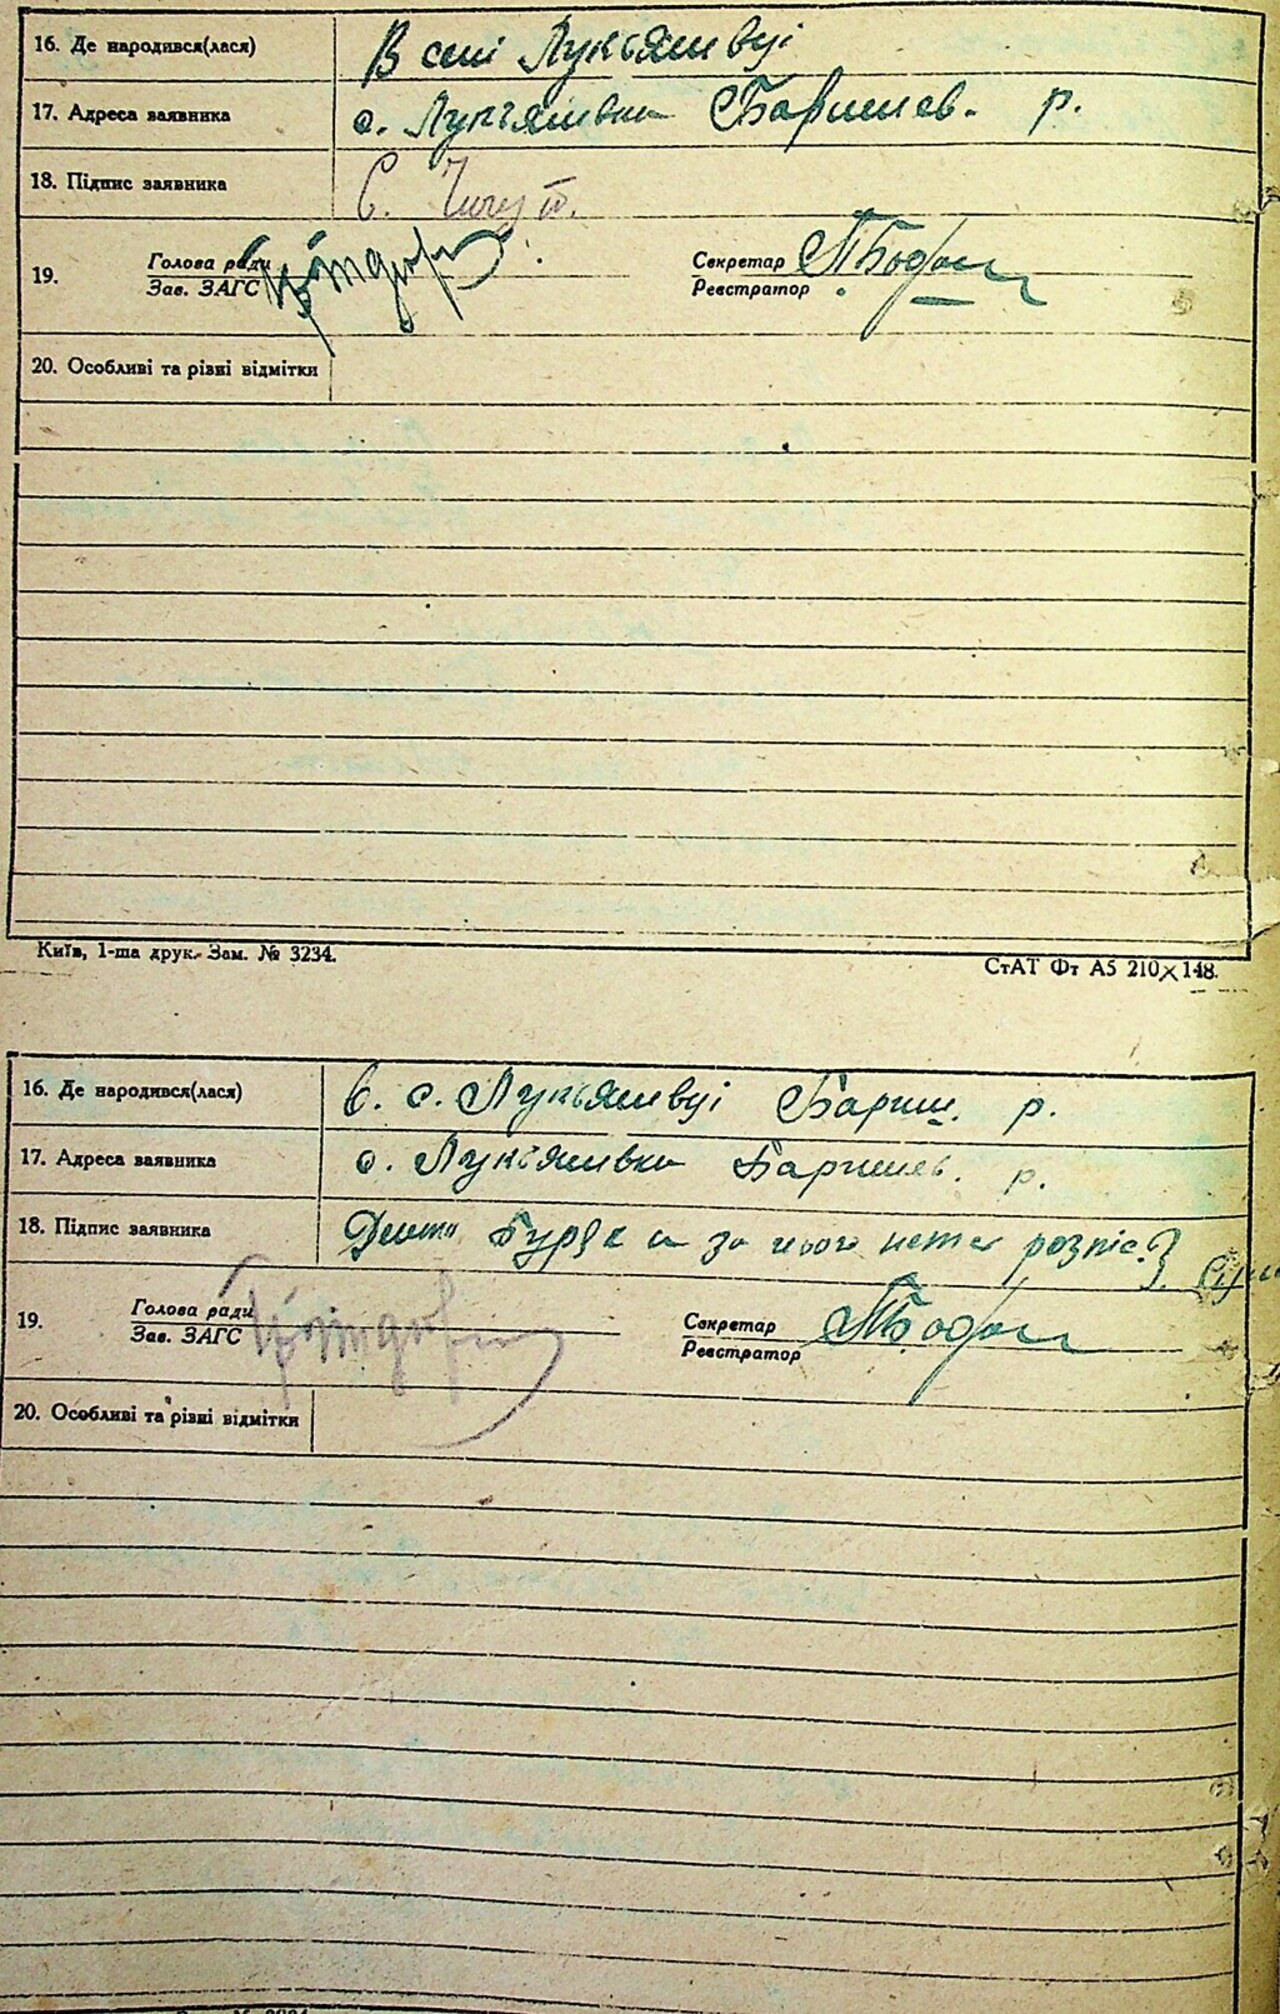 16. Де народився(лася) В селі Лукьянивці
17. Адреса заявника с. Лукьянивка Баришев. р.
18. Підпис заявника Є.
19. Голова ради Секретар
Зав. ЗАГС Реєстратор
20. Особливі та різні відмітки
Київ, 1-ша друк. Зам. № 3234.
СтАТ Фт А5 210×148.
16. Де народився(лася) В. с. Лукьянивці Бариш. р.
17. Адреса заявника с. Лукьянивка Баришев. р.
18. Підпис заявника за нього розпис.
19. Голова ради Секретар
Зав. ЗАГС Реєстратор
20. Особливі та різні відмітки